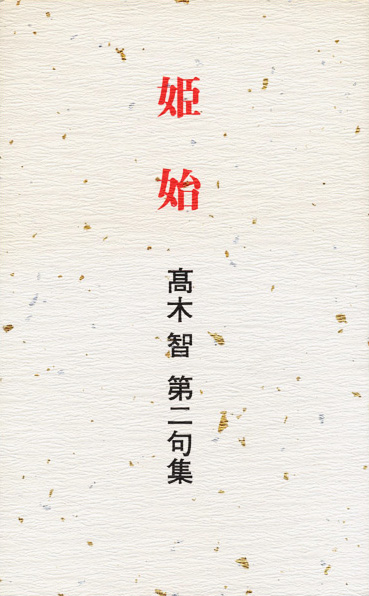 姫始
髙木智 第二句集